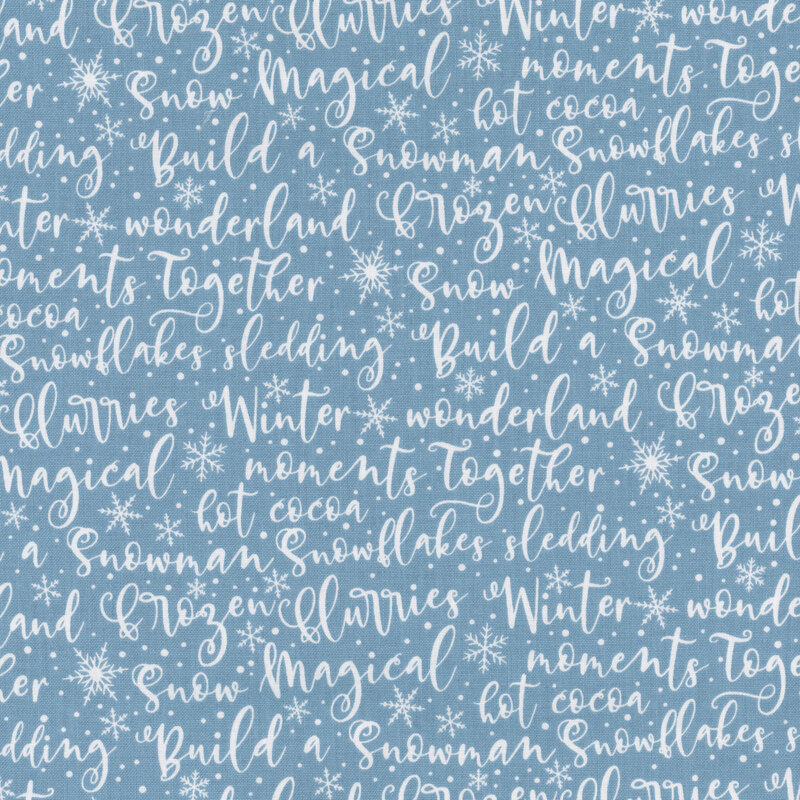 and Frozen flurries Winter wonder
er Snow Magical moments Together
hot cocoa
sledding Build a Snowman Snowflakes s
nter wonderland Frozen flurries W
oments Together Snow Magical
cocoa hot
Snowflakes sledding Build a Snowman
flurries Winter wonderland Froze
Magical moments Together Snow
hot cocoa
a Snowman Snowflakes sledding Buil
land Frozen flurries Winter wonde
her Snow Magical moments Togethe
hot cocoa
edding Build a Snowman Snowflakes s